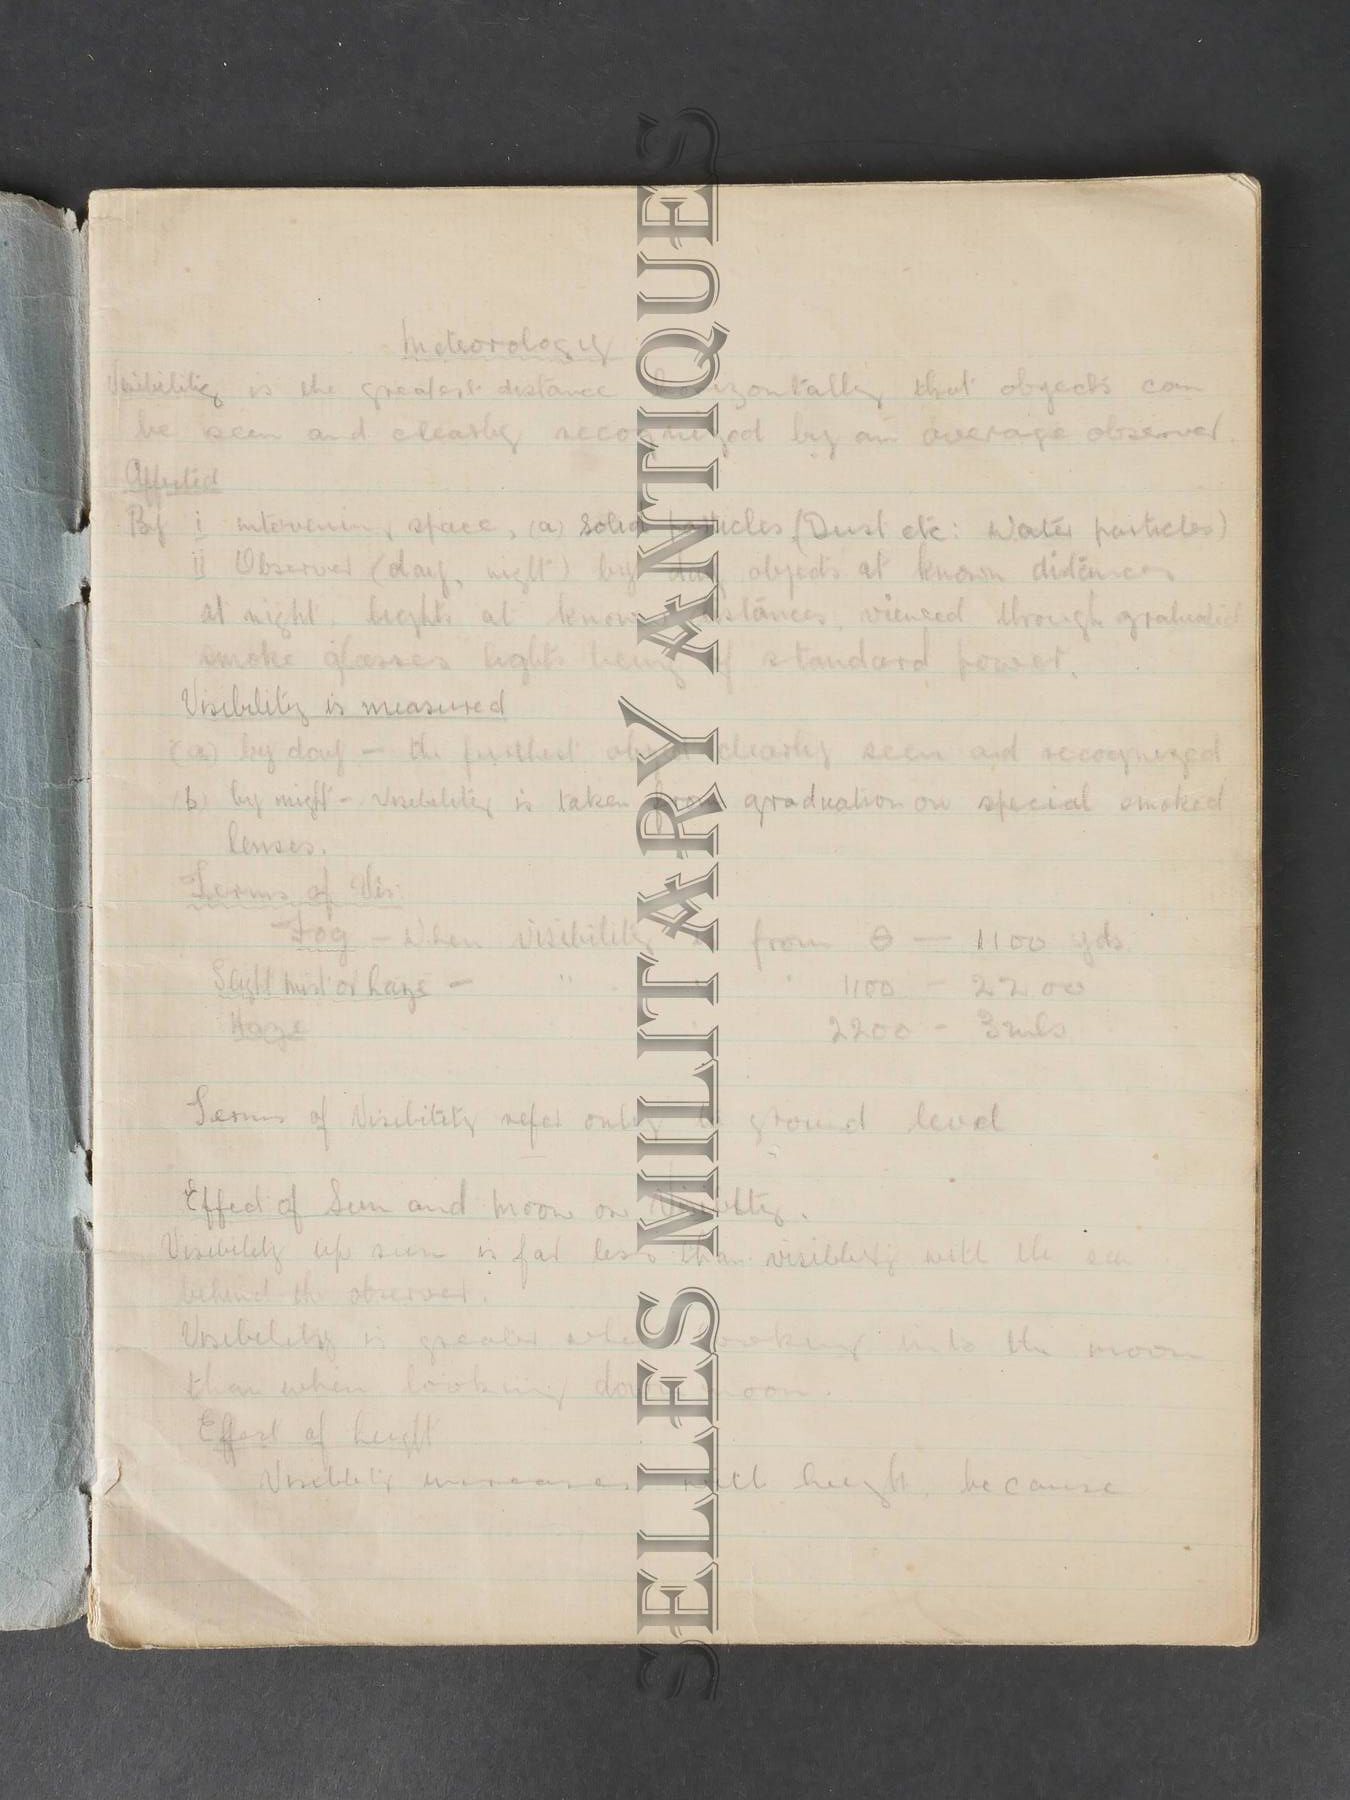 Meteorology
Visibility is the greatest distance horizontally that objects can
be seen and clearly recognized by an average observer.
Affected
By i intervening space, (a) Solid particles (Dust etc: Water particles)
ii Observer (day, night) by day objects at known distances
at night lights at known distances, viewed through graduated
smoke glasses lights being of standard power.
Visibility is measured
(a) by day - the furthest object clearly seen and recognized
(b) by night - Visibility is taken from graduation on special smoked
lenses.
Terms of Vis:
Fog - When visibility is from 0 - 1100 yds.
Slight mist or haze - " " 1100 - 2200
Haze 2200 - 3 mls
Terms of Visibility refer only to ground level
Effect of Sun and moon on Visibility.
Visibility up sun is far less than visibility with the sun
behind the observer.
Visibility is greater when looking into the moon
than when looking down moon.
Effect of height
Visibility increases with height, because
SELLES MILITARY ANTIQUES